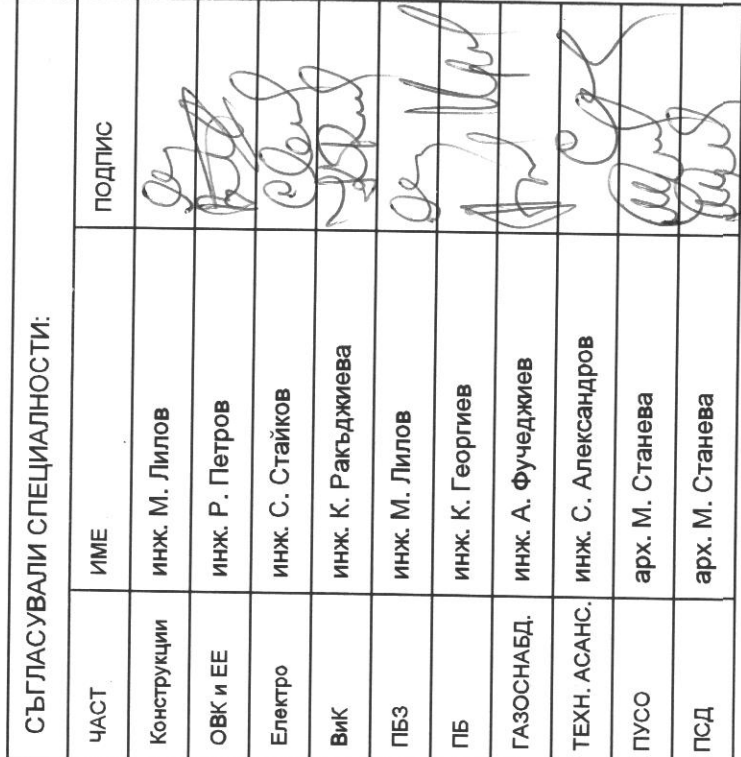 СЪГЛАСУВАЛИ СПЕЦИАЛНОСТИ:
ЧАСТ ИМЕ ПОДПИС
Конструкции инж. М. Лилов
ОВК и ЕЕ инж. Р. Петров
Електро инж. С. Стайков
ВиК инж. К. Ракъджиева
ПБЗ инж. М. Лилов
ПБ инж. К. Георгиев
ГАЗОСНАБД. инж. А. Фучеджиев
ТЕХН. АСАНС. инж. С. Александров
ПУСО арх. М. Станева
ПСД арх. М. Станева